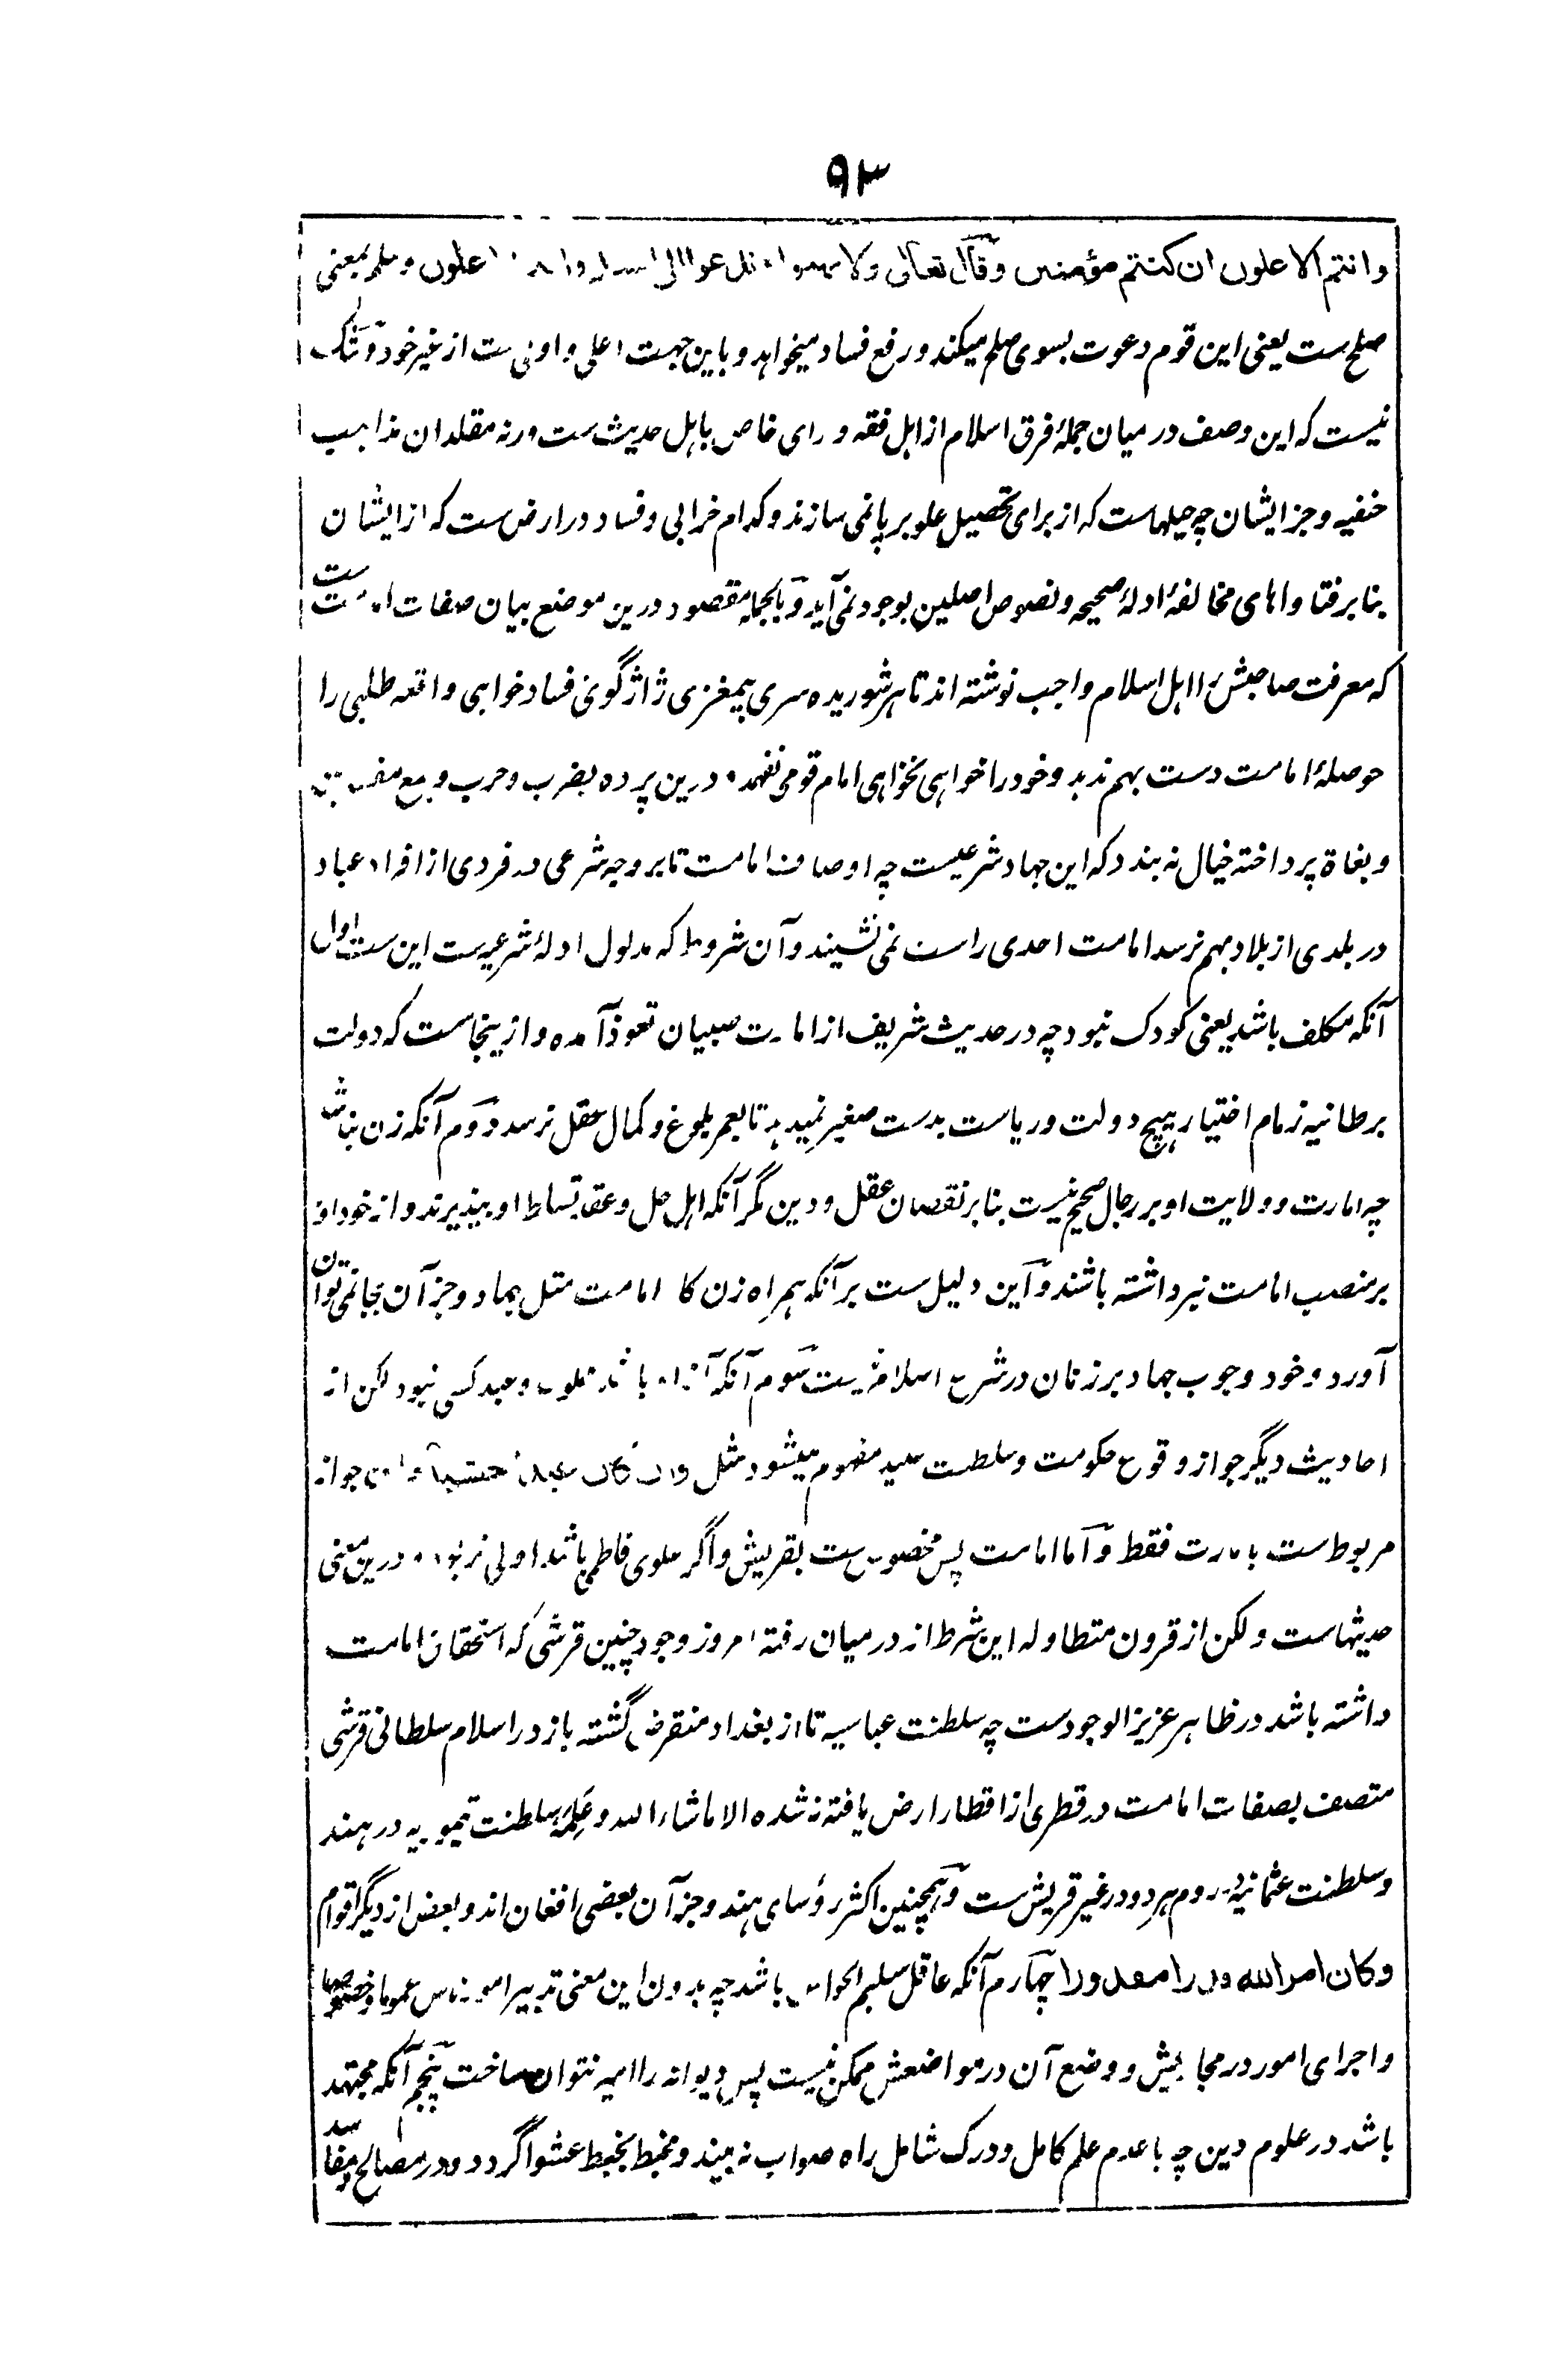 ۹۳
وانتم الاعلون ان کنتم مؤمنین وقال تعالی ولا تهنوا وتدعوا الی السلم وانتم الاعلون وسلم بمعنی
صلح ست یعنی این قوم دعوت بسوی صلح میکند و رفع فساد میخواهد و باین جهت اعلی و اولی ست از غیر خود و شک
نیست که این وصف در میان جملهٔ فرق اسلام از اهل فقه و رای خاص باهل حدیث ست ورنه مقلدان مذاهب
حنفیه و جز ایشان چه حیلهاست که از برای تحصیل علو برپا نمی سازند و کدام خرابی و فساد در ارض ست که از ایشان
بنابر فتاواهای مخالفهٔ ادلهٔ صحیحه و نصوص اصلین بوجود نمی آید و بالجمله مقصود درین موضع بیان صفات امامت ست
که معرفت صاحبش را اهل اسلام واجب نوشته اند تا هر شوریده سری بیمغزی ژاژگوئی فساد خواهی واقعه طلبی را
حوصلهٔ امامت دست بهم ندهد و خود را خواهی نخواهی امام قوم نفهمد و درین پرده بضرب و حرب و جمع مفسدین
و بغاة پرداخته خیال نه بندد که این جهاد شرعیست چه اوصاف امامت تا بر وجه شرعی در فردی از افراد عباد
در بلدی از بلاد بهم نرسد امامت احدی راست نمی نشیند و آن شروط که مدلول ادلهٔ شرعیه ست این ست اول
آنکه مکلف باشد یعنی کودک نبود چه در حدیث شریف از امارت صبیان تعوذ آمده و از ینجاست که دولت
برطانیه زمام اختیار هیچ دولت و ریاست بدست صغیر نمیدهد تا بعمر بلوغ و کمال عقل نرسد دوم آنکه زن نباشد
چه امارت و ولایت او بر رجال صحیح نیست بنابر نقصان عقل و دین مگر آنکه اهل حل و عقد تسلط او بپذیرند و از خود او
بر منصب امامت نبرداشته باشند و این دلیل ست بر آنکه همراه زن کار امامت مثل جهاد و جز آن بجا نمی توان
آورد و خود وجوب جهاد بر زنان در شرع اسلام نیست سوم آنکه آزاد باشد مملوک و عبد کسی نبود لکن از
احادیث دیگر جواز وقوع حکومت و سلطنت عبید مفهوم میشود مثل وان کان عبدا حبشیا و این جواز
مربوط ست بامارت فقط و اما امامت پس مخصوص ست بقریش و اگر علوی فاطمی باشد اولی تر بود و درین معنی
حدیثهاست ولکن از قرون متطاوله این شرط از درمیان رفته امروز وجود چنین قرشی که استحقاق امامت
داشته باشد در ظاهر عزیز الوجودست چه سلطنت عباسیه تا از بغداد منقرض گشته باز در اسلام سلطانی قرشی
متصف بصفات امامت در قطری از اقطار ارض یافته نشده الا ماشاء الله و غلبهٔ سلطنت تیموریه در هند
و سلطنت عثمانیه در روم هر دو در غیر قریش ست و همچنین اکثر رؤسای هند و جز آن بعضی افغان اند و بعض از دیگر اقوام
وکان امر الله قدرا مقدورا چهارم آنکه عاقل سلیم الحواس باشد چه بدون این معنی تدبیر امور ناس عموما و خصوصا
و اجرای امور در مجاریش و وضع آن در مواضعش ممکن نیست پس دیوانه را امیر نتوان ساخت پنجم آنکه مجتهد
باشد در علوم دین چه با عدم علم کامل و درک شامل راه صواب نه بیند و مخبط بخبط عشوا گردد و در مصالح و مفاسد